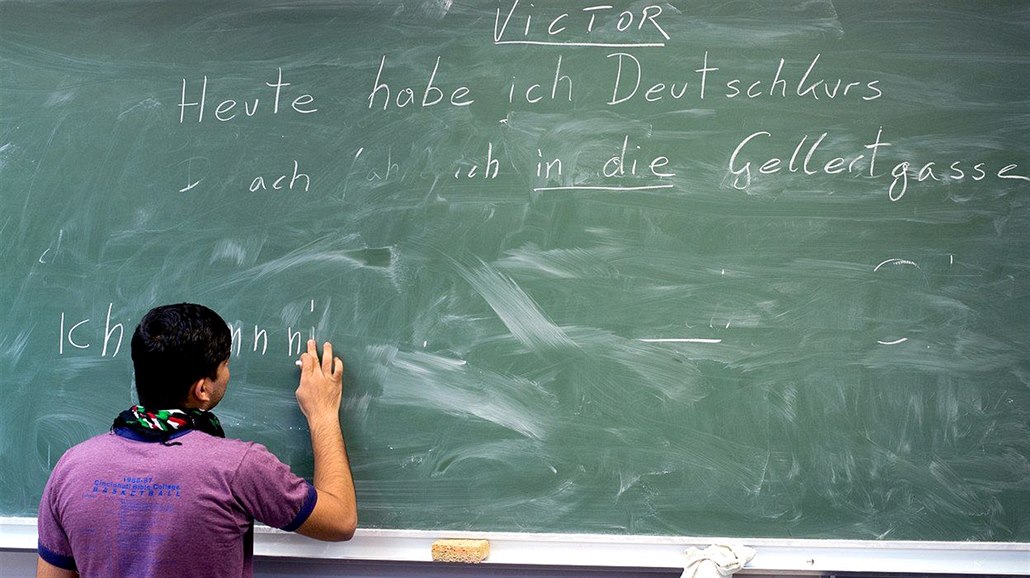 VICTOR
Heute habe ich Deutschkurs
ach ich in die Gellertgasse
Ich
1986-87
Cincinnati Bible College
BASKETBALL